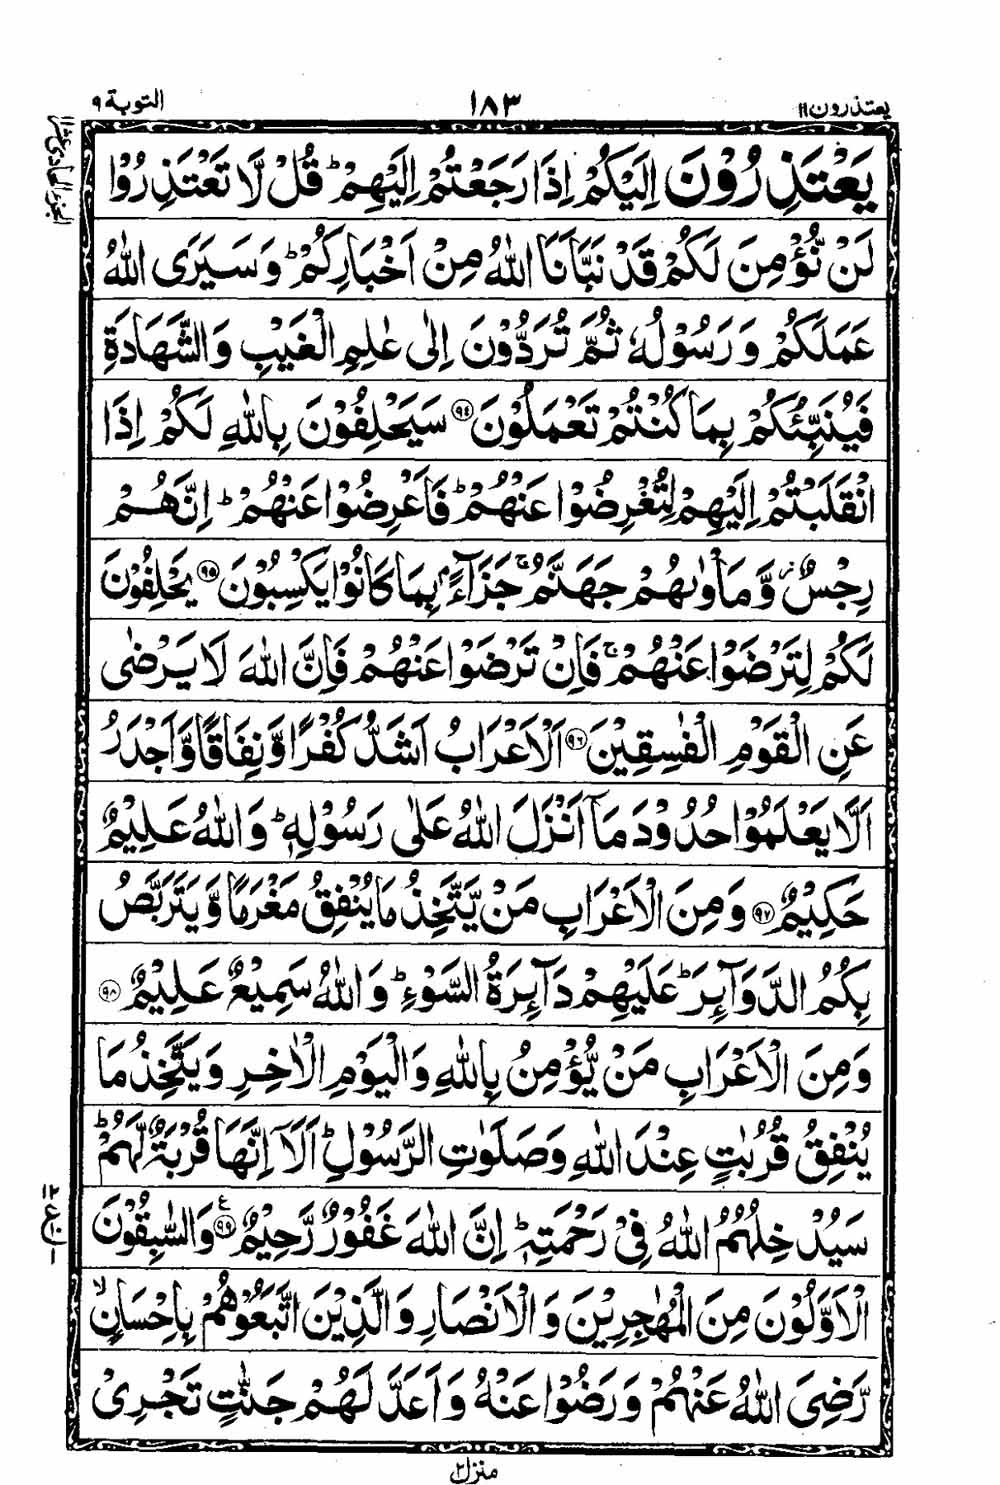 يعتذرون ١١
١٨٣
التوبة ٩
يَعْتَذِرُوْنَ اِلَيْكُمْ اِذَا رَجَعْتُمْ اِلَيْهِمْ ؕ قُلْ لَّا تَعْتَذِرُوْا
لَنْ نُّؤْمِنَ لَكُمْ قَدْ نَبَّاَنَا اللّٰهُ مِنْ اَخْبَارِكُمْ ؕ وَسَيَرَى اللّٰهُ
عَمَلَكُمْ وَرَسُوْلُهٗ ثُمَّ تُرَدُّوْنَ اِلٰى عٰلِمِ الْغَيْبِ وَالشَّهَادَةِ
فَيُنَبِّئُكُمْ بِمَا كُنْتُمْ تَعْمَلُوْنَ ﴿٩٤﴾ سَيَحْلِفُوْنَ بِاللّٰهِ لَكُمْ اِذَا
انْقَلَبْتُمْ اِلَيْهِمْ لِتُعْرِضُوْا عَنْهُمْ ؕ فَاَعْرِضُوْا عَنْهُمْ ؕ اِنَّهُمْ
رِجْسٌ ؗ وَّمَاْوٰىهُمْ جَهَنَّمُ ۚ جَزَآءًۢ بِمَا كَانُوْا يَكْسِبُوْنَ ﴿٩٥﴾ يَحْلِفُوْنَ
لَكُمْ لِتَرْضَوْا عَنْهُمْ ۚ فَاِنْ تَرْضَوْا عَنْهُمْ فَاِنَّ اللّٰهَ لَا يَرْضٰى
عَنِ الْقَوْمِ الْفٰسِقِيْنَ ﴿٩٦﴾ اَلْاَعْرَابُ اَشَدُّ كُفْرًا وَّنِفَاقًا وَّاَجْدَرُ
اَلَّا يَعْلَمُوْا حُدُوْدَ مَآ اَنْزَلَ اللّٰهُ عَلٰى رَسُوْلِهٖ ؕ وَاللّٰهُ عَلِيْمٌ
حَكِيْمٌ ﴿٩٧﴾ وَمِنَ الْاَعْرَابِ مَنْ يَّتَّخِذُ مَا يُنْفِقُ مَغْرَمًا وَّيَتَرَبَّصُ
بِكُمُ الدَّوَآئِرَ ؕ عَلَيْهِمْ دَآئِرَةُ السَّوْءِ ؕ وَاللّٰهُ سَمِيْعٌ عَلِيْمٌ ﴿٩٨﴾
وَمِنَ الْاَعْرَابِ مَنْ يُّؤْمِنُ بِاللّٰهِ وَالْيَوْمِ الْاٰخِرِ وَيَتَّخِذُ مَا
يُنْفِقُ قُرُبٰتٍ عِنْدَ اللّٰهِ وَصَلَوٰتِ الرَّسُوْلِ ؕ اَلَآ اِنَّهَا قُرْبَةٌ لَّهُمْ ؕ
سَيُدْخِلُهُمُ اللّٰهُ فِيْ رَحْمَتِهٖ ؕ اِنَّ اللّٰهَ غَفُوْرٌ رَّحِيْمٌ ﴿٩٩﴾ ع وَالسّٰبِقُوْنَ
الْاَوَّلُوْنَ مِنَ الْمُهٰجِرِيْنَ وَالْاَنْصَارِ وَالَّذِيْنَ اتَّبَعُوْهُمْ بِاِحْسَانٍ ۙ
رَّضِيَ اللّٰهُ عَنْهُمْ وَرَضُوْا عَنْهُ وَاَعَدَّ لَهُمْ جَنّٰتٍ تَجْرِيْ
منزل ٢
الجزء الحادي عشر